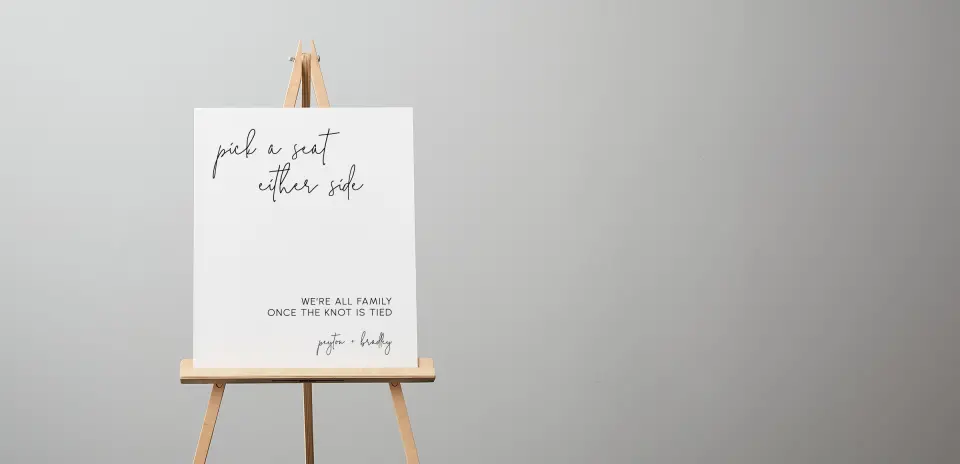 pick a seat
either side
WE'RE ALL FAMILY
ONCE THE KNOT IS TIED
peyton + bradley